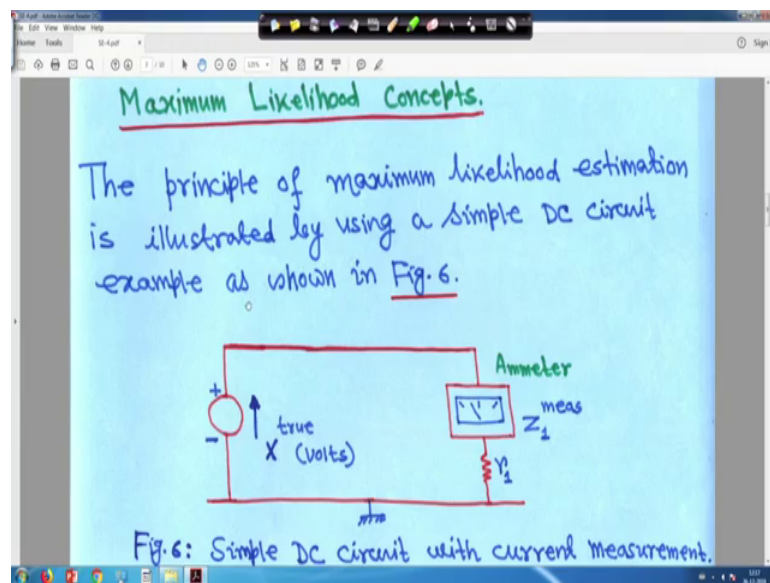 SE-4.pdf - Adobe Acrobat Reader DC
File Edit View Window Help
Home Tools SE-4.pdf × Sign
125%
Maximum Likelihood Concepts.
The principle of maximum likelihood estimation
is illustrated by using a simple DC circuit
example as shown in Fig. 6.
Ammeter
+
-
true
X (volts)
meas
Z1
r1
Fig. 6: Simple DC circuit with current measurement.